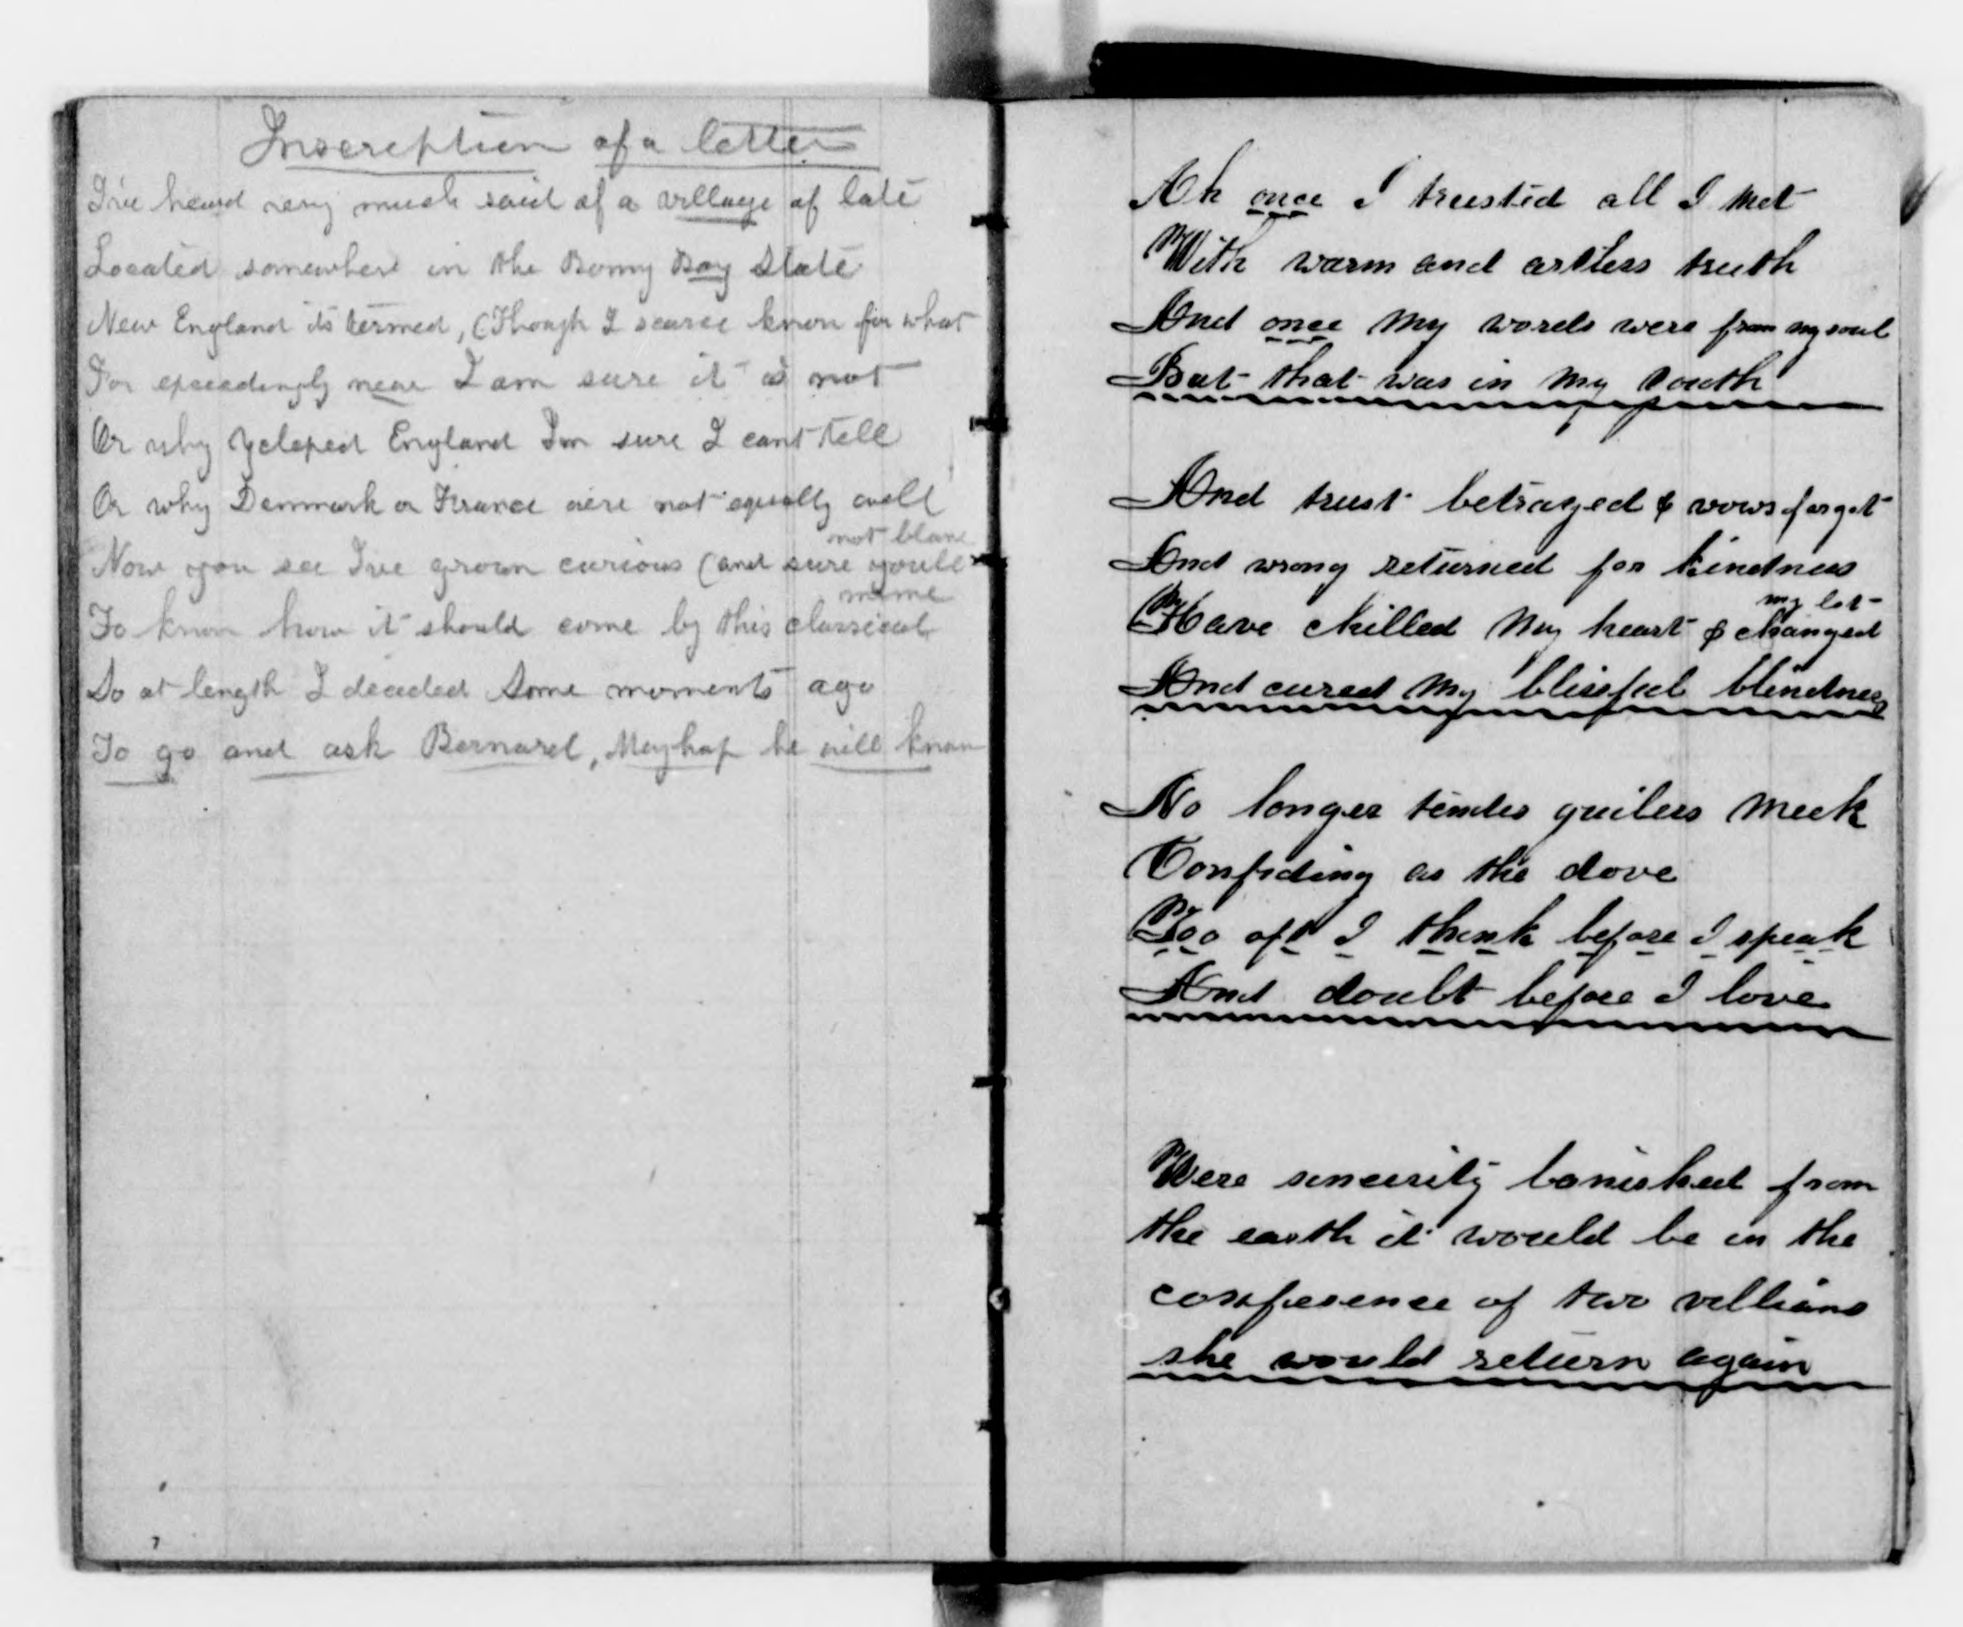 Inscreption of a letter
I've heard very much said of a village of late
Located somewhere in the Bonny Bay State
New England its termed, (Though I scarce know for what
For exceedingly near I am sure it is not
Or why Ycleped England I'm sure I cant tell
Or why Denmark or France were not equally well
Now you see I've grown curious (and sure youll not blame
To know how it should come by this classical name
So at length I decided some moments ago
To go and ask Bernard, Mayhap he will know
Ah once I trusted all I met
With warm and artless truth
And once my words were from my soul
But that was in my youth
And trust betrayed & vows forgot
And wrong returned for kindness
Have chilled my heart & changed my lot
And cured my blissful blindness
No longer tender guiless meek
Confiding as the dove
Too oft I think before I speak
And doubt before I love
Were sincerity banished from
the earth it would be in the
conference of two villians
she would return again